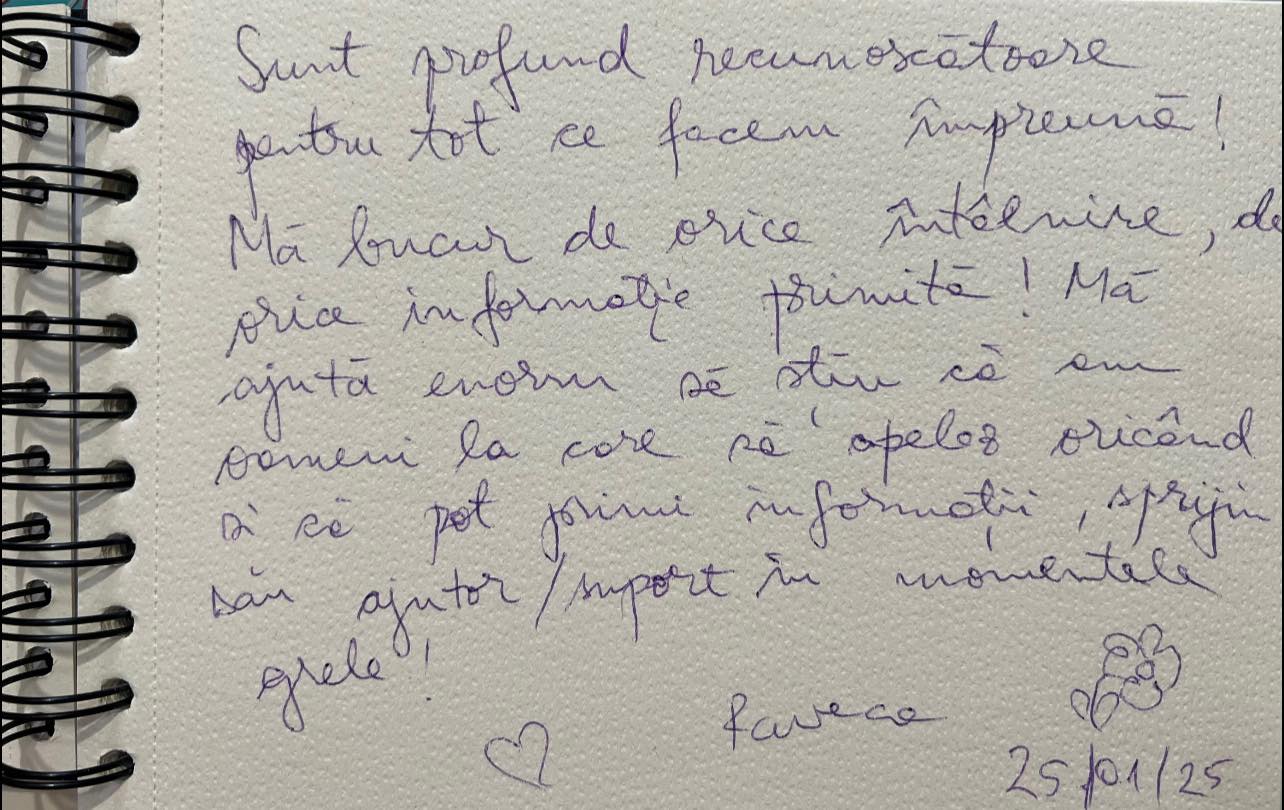 Sunt profund recunoscătoare
pentru tot ce facem împreună!
Mă bucur de orice întâlnire, de
orice informație primită! Mă
ajută enorm să știu că am
oameni la care să apelez oricând
și că pot primi informații, sprijin
sau ajutor/suport în momentele
grele!
Raveca
25/01/25